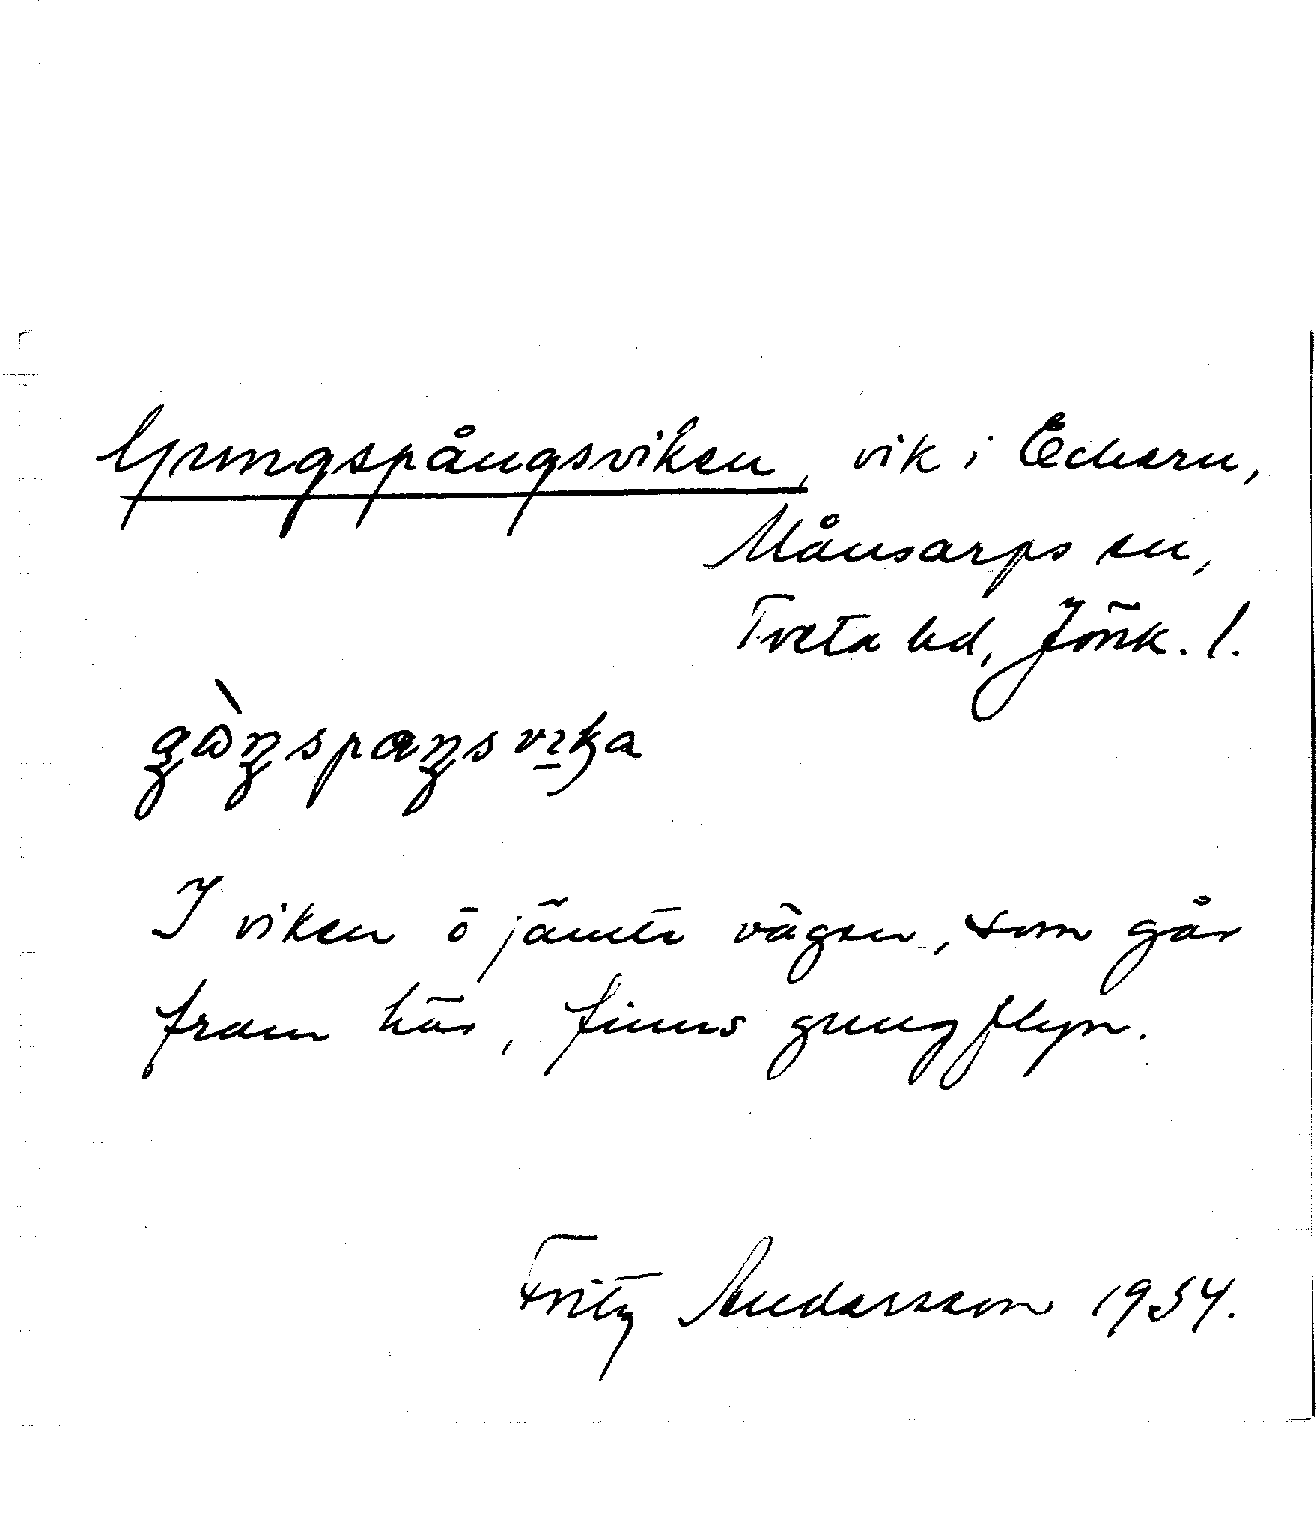 Gungspångsviken, vik i Eckern,
Månsarps sn,
Tveta hd, Jönk. l.
I viken o jämte vägen, som går
fram här, finns gungflyn.
Fritz Andersson 1934.